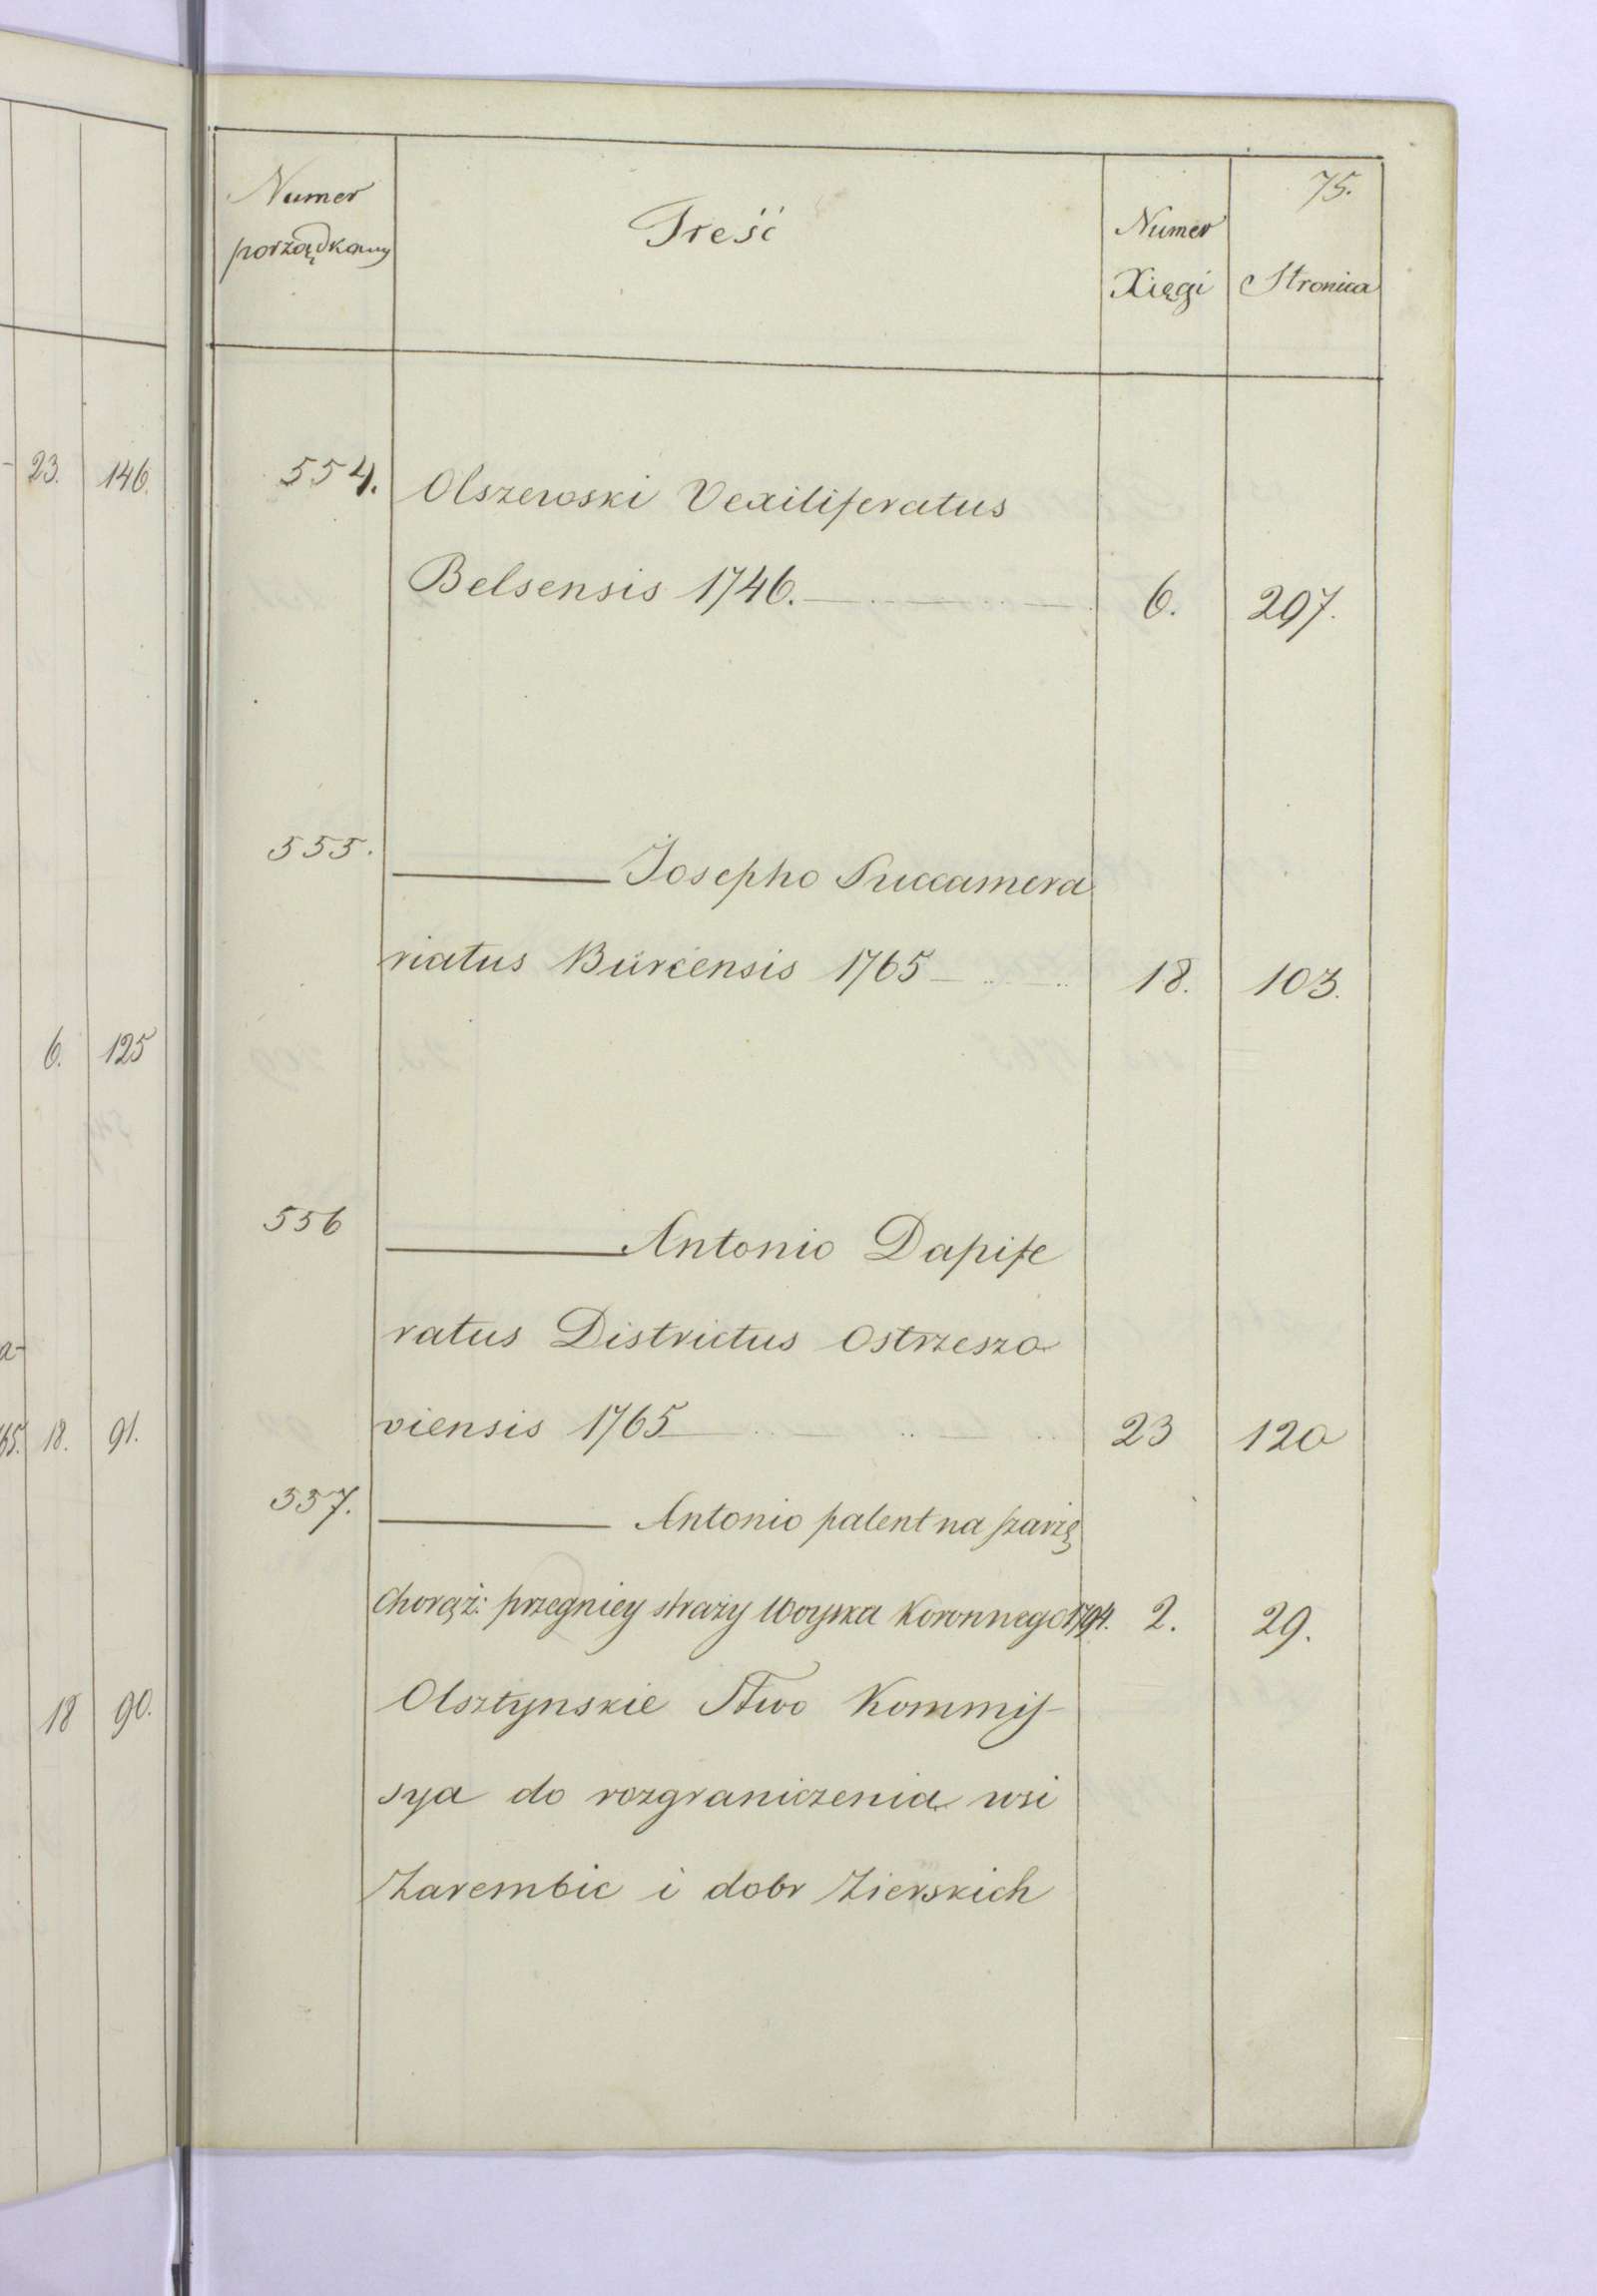 23. 146.
6. 125
a-
65. 18. 91.
18 90.
75.
Numer porządkowy
Treść
Numer Xięgi
Stronica
554. Olszewski Vexiliferatus
Belsensis 1746. 6. 297.
555. Josepho Succamera
riatus Burcensis 1765 18. 103.
556 Antonio Dapife
ratus Districtus Ostrzeszo
viensis 1765 23 120
557. Antonio patent na szarżę
Chorąż: przedniey straży Woyska Koronnego 1794. 2. 29.
Olsztynskie Stwo Kommis-
sya do rozgraniczenia wsi
Zarembic i dobr Zierskich